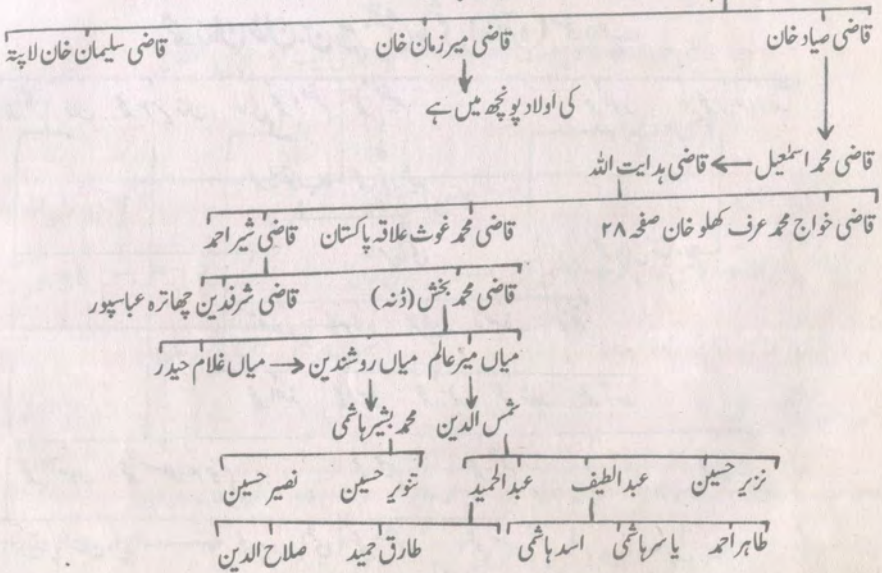 قاضی صیاد خان قاضی میر زمان خان قاضی سلیمان خان لاپتہ
کی اولاد پونچھ میں ہے
قاضی محمد اسمٰعیل ← قاضی ہدایت اللہ
قاضی خواج محمد عرف کھلو خان صفحہ ۲۸ قاضی محمد غوث علاقہ پاکستان قاضی شیر احمد
قاضی محمد بخش (ڈنہ) قاضی شرفدین چھاترہ عباسپور
میاں میر عالم میاں روشندین → میاں غلام حیدر
شمس الدین محمد بشیر ہاشمی
نزیر حسین عبد الطیف عبد الحمید تنویر حسین نصیر حسین
طاہر احمد یاسر ہاشمی اسد ہاشمی طارق حمید صلاح الدین